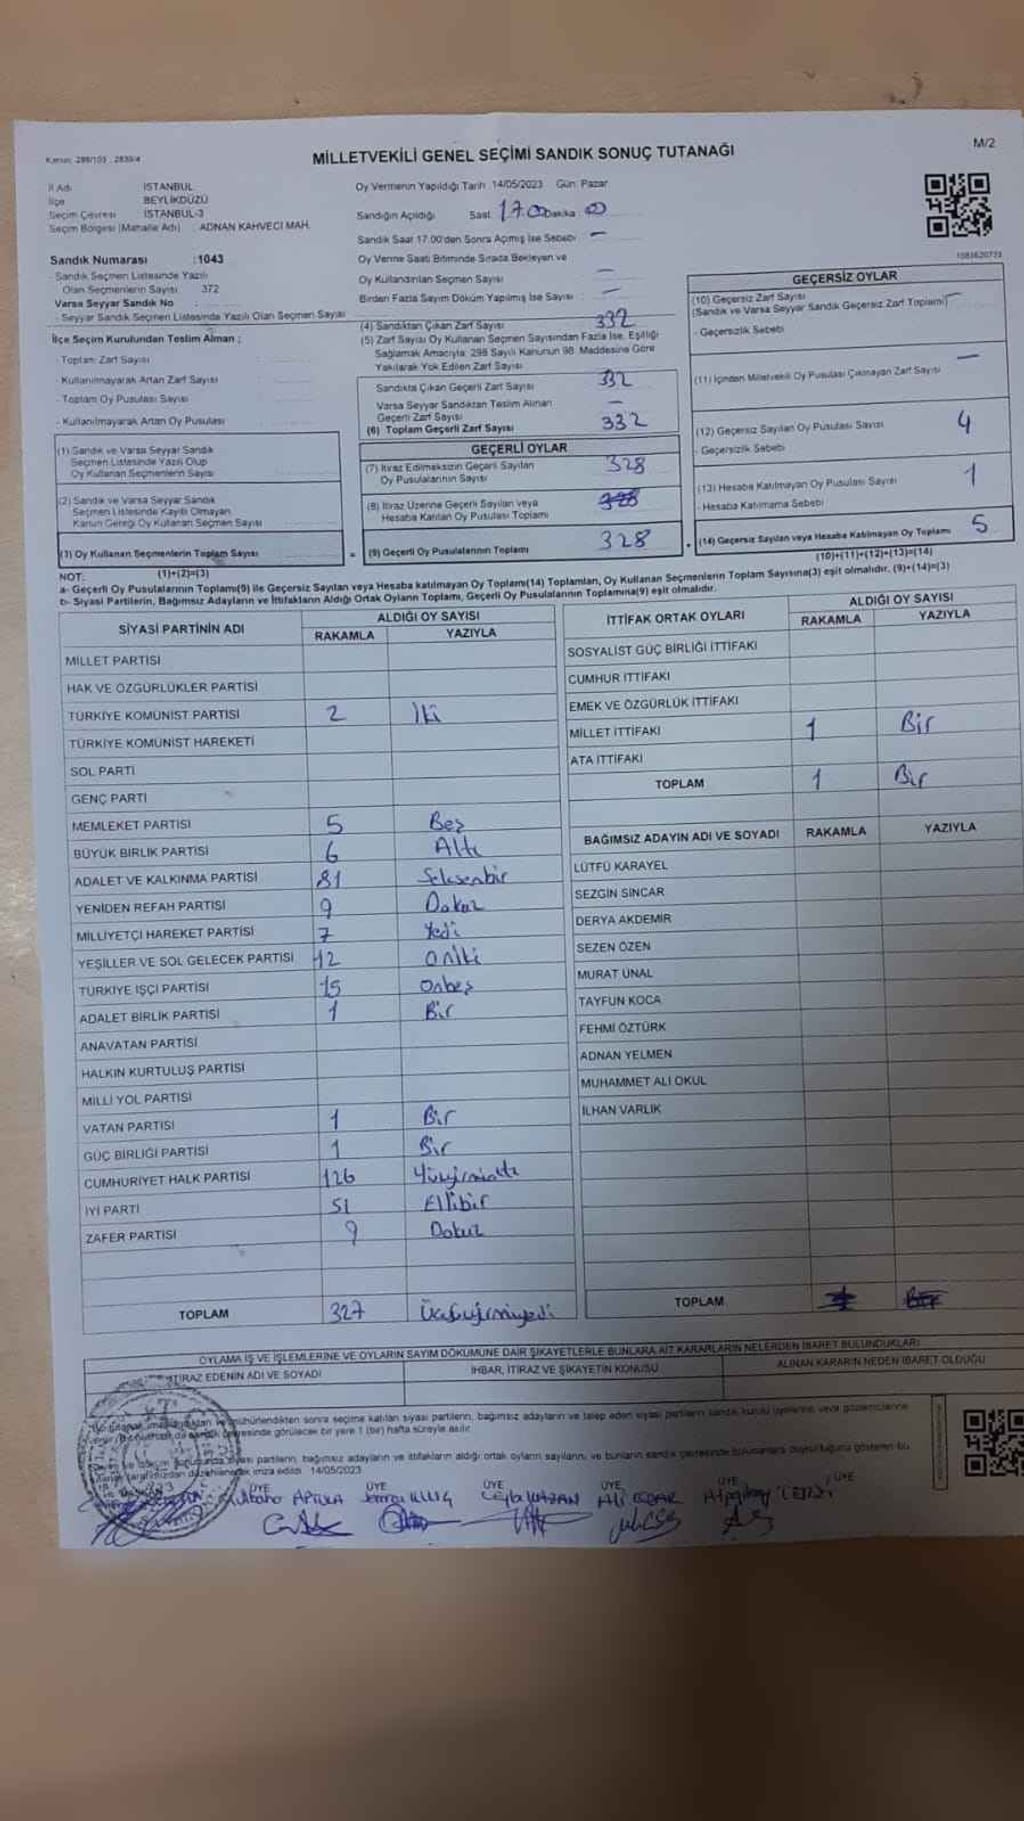 Kanun: 298/103 - 2839/4
MİLLETVEKİLİ GENEL SEÇİMİ SANDIK SONUÇ TUTANAĞI
M/2
İl Adı İSTANBUL
İlçe BEYLİKDÜZÜ
Seçim Çevresi İSTANBUL-3
Seçim Bölgesi (Mahalle Adı) : ADNAN KAHVECİ MAH.
Oy Vermenin Yapıldığı Tarih :14/05/2023 Gün: Pazar
Sandığın Açıldığı Saat 17.00 Dakika 00
Sandık Saat 17.00'den Sonra Açılmış İse Sebebi –
Sandık Numarası :1043
Sandık Seçmen Listesinde Yazılı
Olan Seçmenlerin Sayısı 372
Varsa Seyyar Sandık No
- Seyyar Sandık Seçmen Listesinde Yazılı Olan Seçmen Sayısı
İlçe Seçim Kurulundan Teslim Alınan ;
- Toplam Zarf Sayısı
- Kullanılmayarak Artan Zarf Sayısı
- Toplam Oy Pusulası Sayısı
- Kullanılmayarak Artan Oy Pusulası
(1) Sandık ve Varsa Seyyar Sandık
Seçmen Listesinde Yazılı Olup
Oy Kullanan Seçmenlerin Sayısı
(2) Sandık ve Varsa Seyyar Sandık
Seçmen Listesinde Kayıtlı Olmayan
Kanun Gereği Oy Kullanan Seçmen Sayısı
(3) Oy Kullanan Seçmenlerin Toplam Sayısı
(1)+(2)=(3)
Oy Verme Saati Bitiminde Sırada Bekleyen ve
Oy Kullandırılan Seçmen Sayısı –
Birden Fazla Sayım Döküm Yapılmış İse Sayısı –
(4) Sandıktan Çıkan Zarf Sayısı 332
(5) Zarf Sayısı Oy Kullanan Seçmen Sayısından Fazla İse, Eşitliği
Sağlamak Amacıyla 298 Sayılı Kanunun 98. Maddesine Göre
Yakılarak Yok Edilen Zarf Sayısı
Sandıkta Çıkan Geçerli Zarf Sayısı 332
Varsa Seyyar Sandıktan Teslim Alınan
Geçerli Zarf Sayısı –
(6) Toplam Geçerli Zarf Sayısı 332
GEÇERLİ OYLAR
(7) İtiraz Edilmeksizin Geçerli Sayılan
Oy Pusulalarının Sayısı 328
(8) İtiraz Üzerine Geçerli Sayılan veya
Hesaba Katılan Oy Pusulası Toplamı 328
= (9) Geçerli Oy Pusulalarının Toplamı 328
1081620733
GEÇERSİZ OYLAR
(10) Geçersiz Zarf Sayısı
(Sandık ve Varsa Seyyar Sandık Geçersiz Zarf Toplamı) –
- Geçersizlik Sebebi
(11) İçinden Milletvekili Oy Pusulası Çıkmayan Zarf Sayısı –
(12) Geçersiz Sayılan Oy Pusulası Sayısı 4
- Geçersizlik Sebebi
(13) Hesaba Katılmayan Oy Pusulası Sayısı 1
- Hesaba Katılmama Sebebi
+ (14) Geçersiz Sayılan veya Hesaba Katılmayan Oy Toplamı 5
(10)+(11)+(12)+(13)=(14)
NOT:
a- Geçerli Oy Pusulalarının Toplamı(9) ile Geçersiz Sayılan veya Hesaba katılmayan Oy Toplamı(14) Toplamları, Oy Kullanan Seçmenlerin Toplam Sayısına(3) eşit olmalıdır. (9)+(14)=(3)
b- Siyasi Partilerin, Bağımsız Adayların ve İttifakların Aldığı Ortak Oyların Toplamı, Geçerli Oy Pusulalarının Toplamına(9) eşit olmalıdır.
SİYASİ PARTİNİN ADI ALDIĞI OY SAYISI
RAKAMLA YAZIYLA
MİLLET PARTİSİ
HAK VE ÖZGÜRLÜKLER PARTİSİ
TÜRKİYE KOMÜNİST PARTİSİ 2 İki
TÜRKİYE KOMÜNİST HAREKETİ
SOL PARTİ
GENÇ PARTİ
MEMLEKET PARTİSİ 5 Beş
BÜYÜK BİRLİK PARTİSİ 6 Altı
ADALET VE KALKINMA PARTİSİ 81 Seksenbir
YENİDEN REFAH PARTİSİ 9 Dokuz
MİLLİYETÇİ HAREKET PARTİSİ 7 Yedi
YEŞİLLER VE SOL GELECEK PARTİSİ 12 oniki
TÜRKİYE İŞÇİ PARTİSİ 15 onbeş
ADALET BİRLİK PARTİSİ 1 Bir
ANAVATAN PARTİSİ
HALKIN KURTULUŞ PARTİSİ
MİLLİ YOL PARTİSİ
VATAN PARTİSİ 1 Bir
GÜÇ BİRLİĞİ PARTİSİ 1 Bir
CUMHURİYET HALK PARTİSİ 126
İYİ PARTİ 51 Ellibir
ZAFER PARTİSİ 9 Dokuz
TOPLAM 327 Üçyüzyirmiyedi
İTTİFAK ORTAK OYLARI ALDIĞI OY SAYISI
RAKAMLA YAZIYLA
SOSYALİST GÜÇ BİRLİĞİ İTTİFAKI
CUMHUR İTTİFAKI
EMEK VE ÖZGÜRLÜK İTTİFAKI
MİLLET İTTİFAKI 1 Bir
ATA İTTİFAKI
TOPLAM 1 Bir
BAĞIMSIZ ADAYIN ADI VE SOYADI RAKAMLA YAZIYLA
LÜTFÜ KARAYEL
SEZGİN SİNCAR
DERYA AKDEMİR
SEZEN ÖZEN
MURAT ÜNAL
TAYFUN KOCA
FEHMİ ÖZTÜRK
ADNAN YELMEN
MUHAMMET ALİ OKUL
İLHAN VARLIK
TOPLAM 1 Bir
OYLAMA İŞ VE İŞLEMLERİNE VE OYLARIN SAYIM DÖKÜMÜNE DAİR ŞİKAYETLERLE BUNLARA AİT KARARLARIN NELERDEN İBARET BULUNDUKLARI
İTİRAZ EDENİN ADI VE SOYADI İHBAR, İTİRAZ VE ŞİKAYETİN KONUSU ALINAN KARARIN NEDEN İBARET OLDUĞU
mühürlendikten sonra seçime katılan siyasi partilerin, bağımsız adayların ve talep eden siyasi partilerin sandık kurulu üyelerine veya gözlemcilerine
çevresinde görülecek bir yere 1 (bir) hafta süreyle asılır.
partilerin, bağımsız adayların ve ittifakların aldığı ortak oyların sayılarını, ve bunların sandık
tarafımızdan düzenlenerek imza edildi. 14/05/2023
ÜYE ÜYE ÜYE ÜYE ÜYE ÜYE